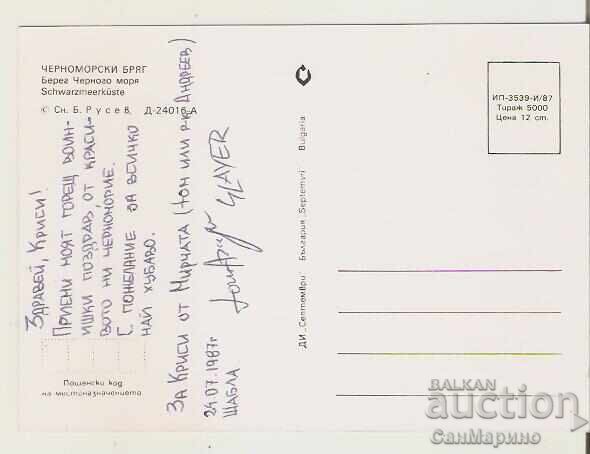 ЧЕРНОМОРСКИ БРЯГ
Берег Черного моря
Schwarzmeerküste
© Сн. Б. Русев, Д-24016-А
Здравей, Криси!
Приеми моят горещ воин-
ишки поздрав, от краси-
вото ни черноморие.
С пожелание за всичко
най хубаво.
За Криси от Мирчата (том или р-к Андреев)
SLAYER
24.07.1987г
Шабла
Пощенски код
на местоназначението
ДИ „Септември" България „Septemvri" Bulgaria
ИП-3539-И/87
Тираж 5000
Цена 12 ст.
BALKAN
auction
СанМарино